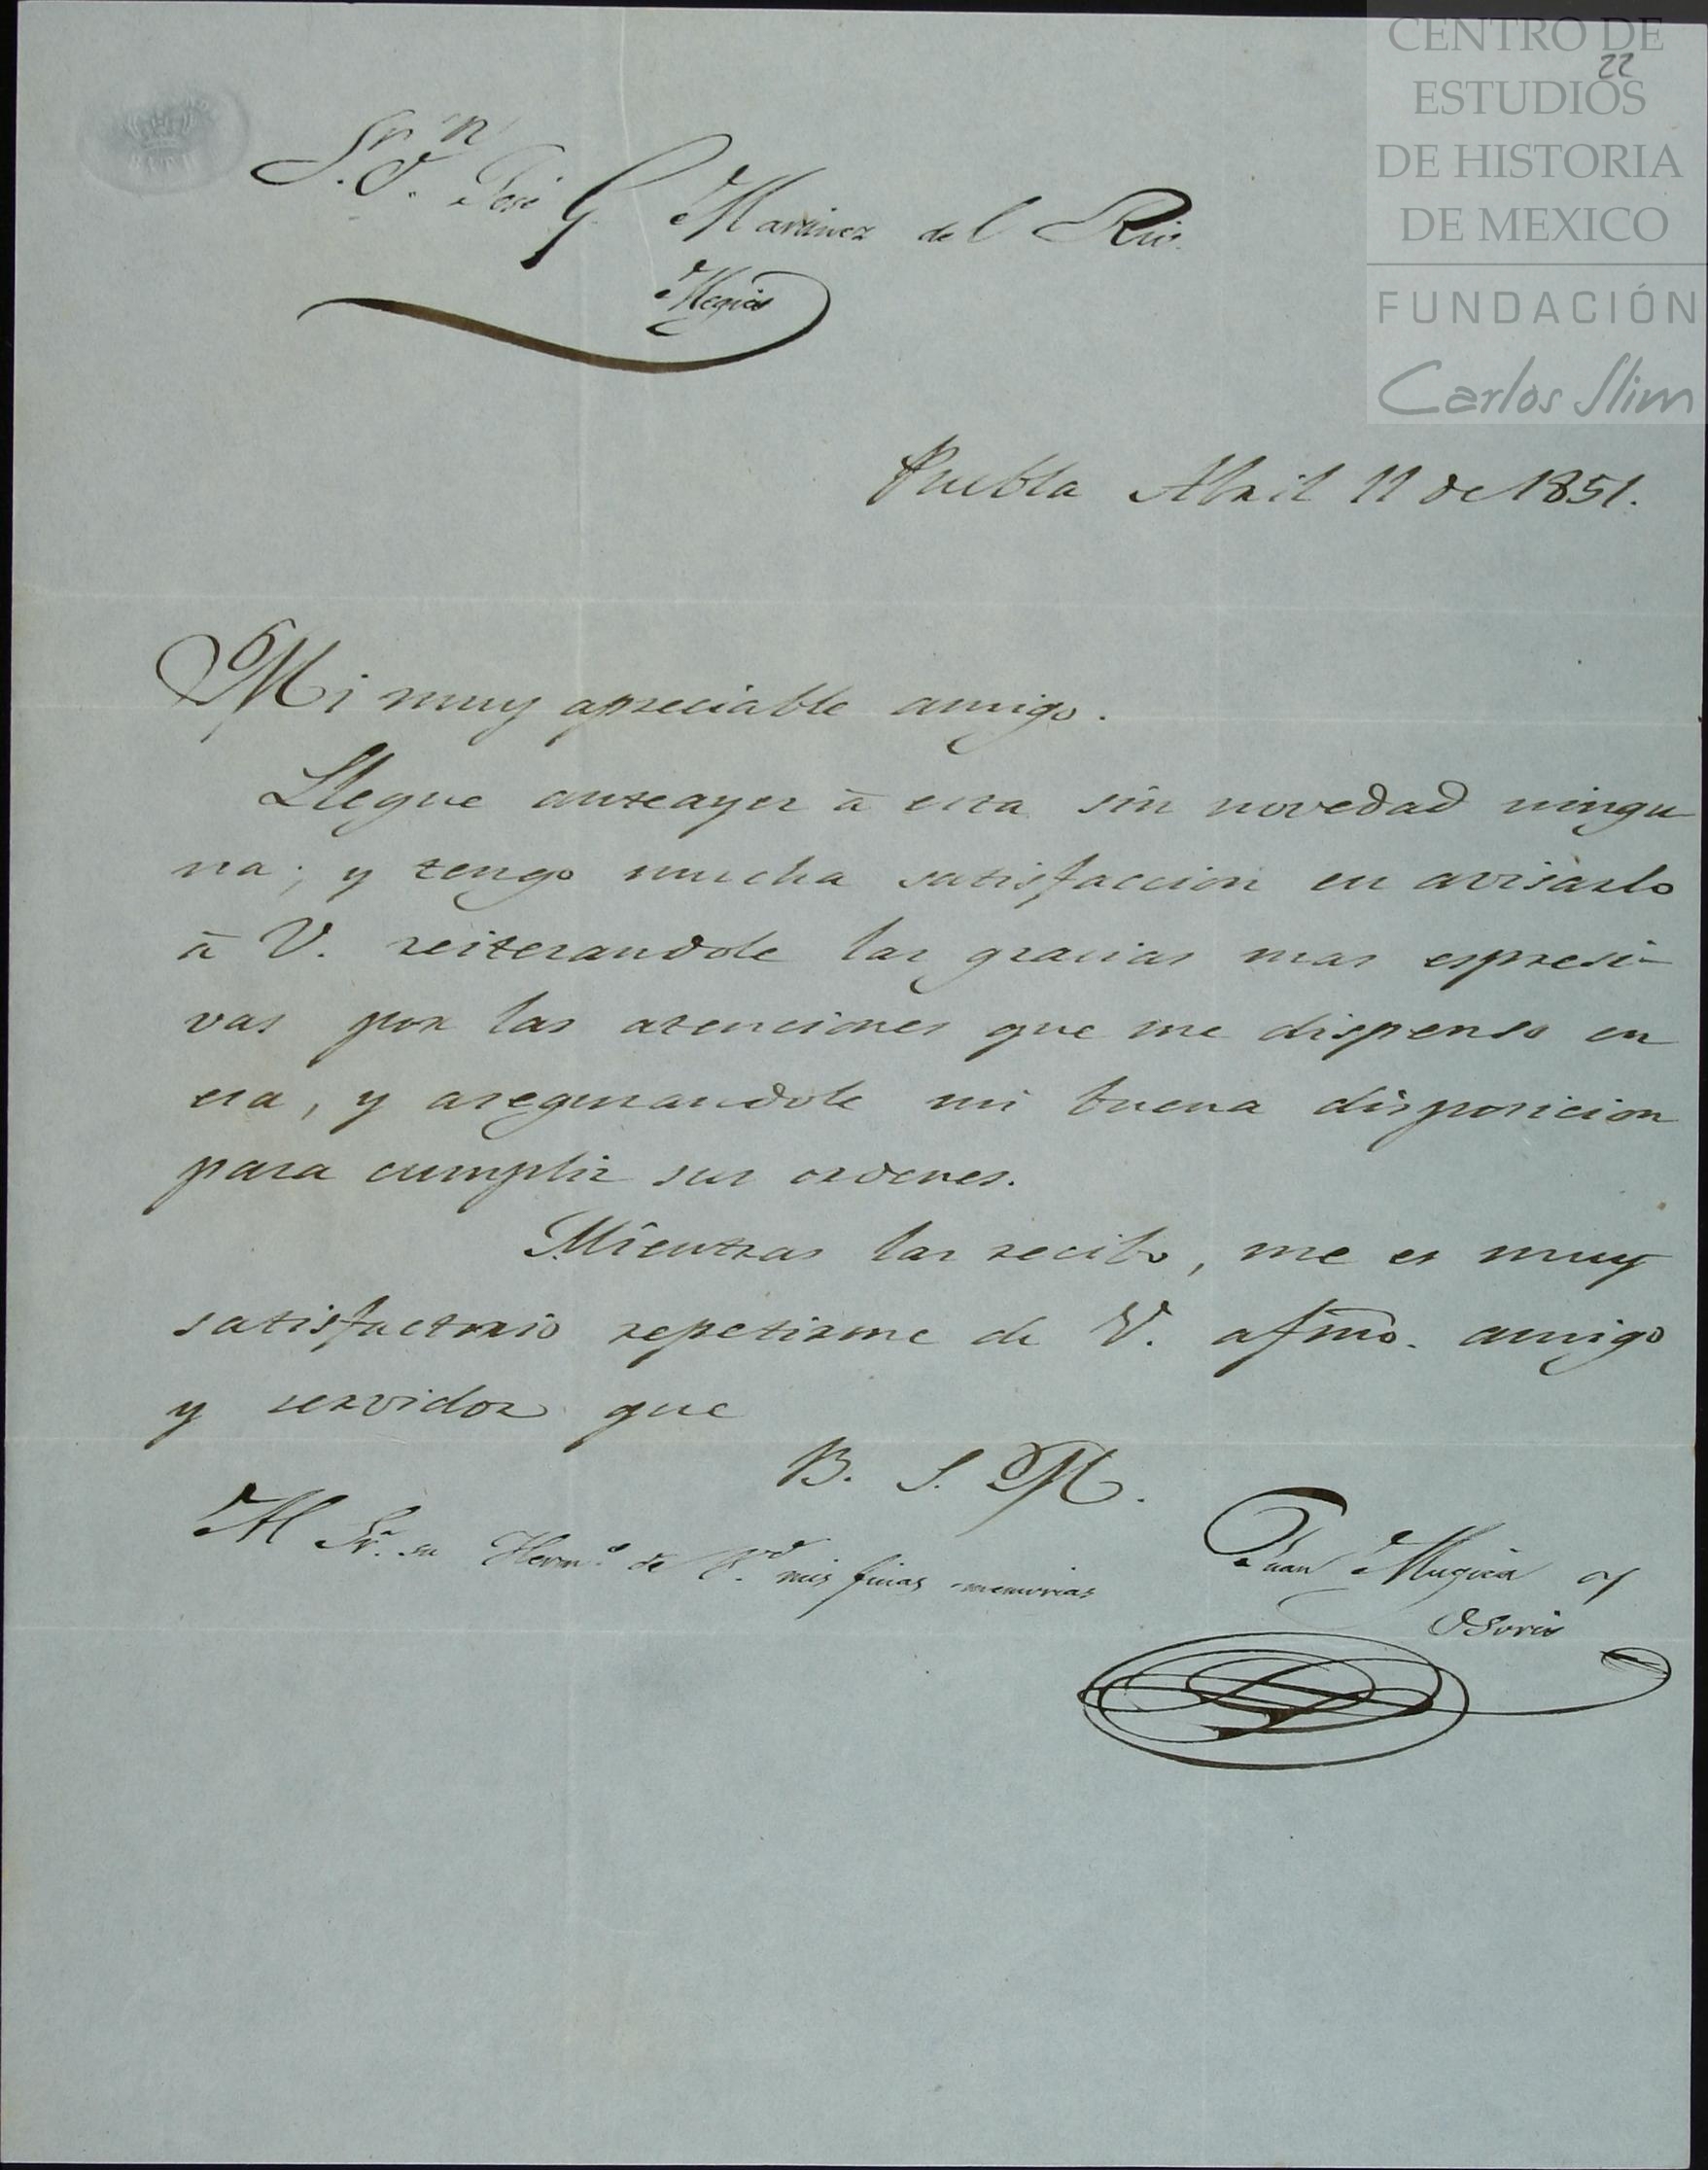 CENTRO DE
ESTUDIOS
DE HISTORIA
DE MEXICO
FUNDACIÓN
Carlos Slim
22
S.r D.n José G Martinez del Rio.
Megico
Puebla Abril 11 de 1851.
Mi muy apreciable amigo.
Llegue anteayer â esta sin novedad ningu-
na; y tengo mucha satisfaccion en avisarlo
â V. reiterandole las gracias mas espresi-
vas por las atenciones que me dispenso en
esa, y asegurandole mi buena disposicion
para cumplir sus ordenes.
Mientras las recibo, me es muy
satisfactorio repetirme de V. afmo. amigo
y servidor que
B. S. M.
Al Sr. su Herm.o de V.d mis finas memorias
Juan Mugica y
Osorio